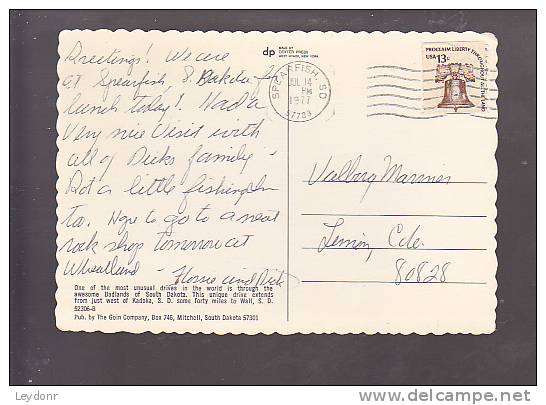 Greetings! We are
at Spearfish, S. Dakota for
lunch today! Had a
very nice visit with
all of Dicks family -
Got a little fishing in
too. Hope to go to a neat
rock shop tomorrow at
Wheatland -
and Dick
One of the most unusual drives in the world is through the
awesome Badlands of South Dakota. This unique drive extends
from just west of Kadoka, S. D. some forty miles to Wall, S. D.
52306-B
Pub. by The Goin Company, Box 745, Mitchell, South Dakota 57301
dp
MADE BY
DEXTER PRESS
WEST NYACK, NEW YORK
SPEARFISH, SD
JUL 14
PM
1977
57783
PROCLAIM LIBERTY THROUGHOUT ALL THE LAND
USA 13c
Valborg
Limon, Colo.
80828
Leydonr
delcampe.net